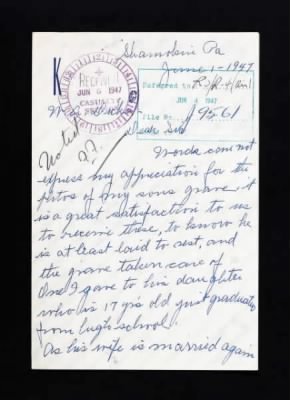 Shamokin Pa
June 1-1947
K
RECEIVED
JUN 5 1947
CASUALTY
Referred to
JUN 4 1947
File No. 19561
Noted
Dear Sir
Words can not
express my appreciation for the
pictos of my sons grave. it
is a great satisfaction to us
to receive these, to know he
is at least laid to rest, and
the grave taken care of
One I gave to his daughter
who is 17 yrs old just graduated
from high school.
As his wife is married again